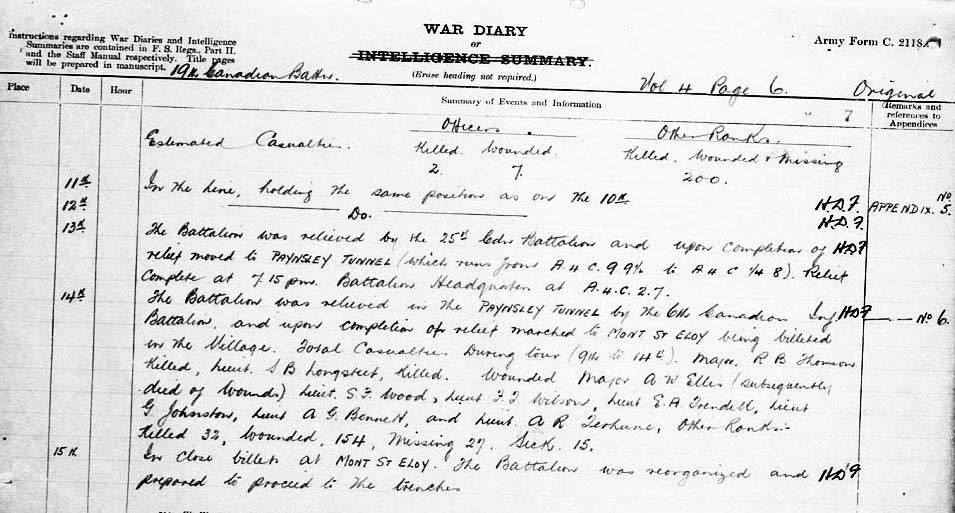 WAR DIARY
or
INTELLIGENCE SUMMARY.
(Erase heading not required.)
Instructions regarding War Diaries and Intelligence
Summaries are contained in F. S. Regs., Part II.
and the Staff Manual respectively. Title pages
will be prepared in manuscript.
Army Form C. 2118.
19th Canadian Battn.
Vol 4 Page 6.
Original
Place Date Hour Summary of Events and Information Remarks and references to Appendices
7
Officers. Other Ranks.
Estimated Casualties. Killed. Wounded. Killed, Wounded & Missing
2. 7. 200.
11th In the line, holding the same position as on the 10th H.D.F. APPENDIX No 5.
12th Do. H.D.F.
13th The Battalion was relieved by the 25th Cdn Battalion and upon completion of HDF
relief moved to PAYNSLEY TUNNEL (which runs from A.4.C. 9 9½ to A 4 C ¼ 8). Relief
Complete at 7.15 pm. Battalion Headquarters at A.4.C. 2.7.
14th The Battalion was relieved in the PAYNSLEY TUNNEL by the 6th Canadian Inf HDF No 6.
Battalion, and upon completion of relief marched to MONT ST ELOY being billeted
in the Village. Total Casualties During tour (9th to 14th). Major. R B Thomson
Killed, Lieut. S B Longstreet, Killed. Wounded Major A W Ellis (subsequently
died of Wounds) Lieut. S.F. Wood, Lieut F.J. Wilson, Lieut E.A. Trendell, Lieut
G Johnston, Lieut A G. Bennett, and Lieut. A R Terhune, Other Ranks:-
Killed 32, Wounded, 154, Missing 27. Sick. 15.
15th In Close billets at MONT ST ELOY. The Battalion was reorganized and HDF
prepared to proceed to the trenches